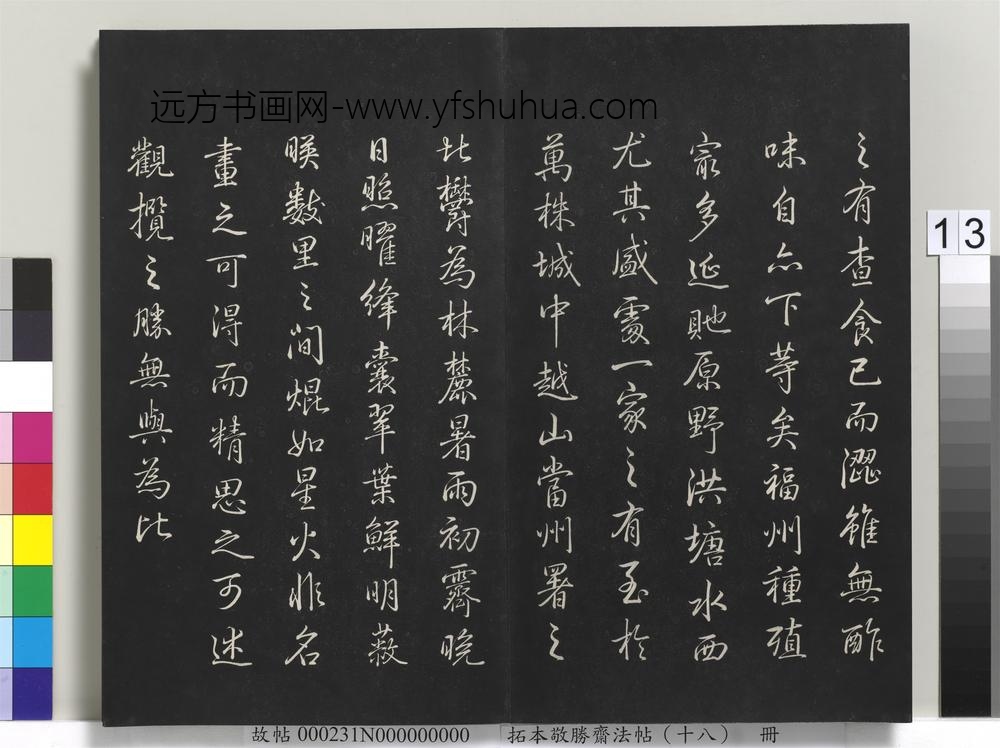 远方书画网-www.yfshuhua.com
之有查食已而澀雖無酢
味自亦下等矣福州種殖
冣多延貤原野洪塘水西
尤其盛處一家之有至於
萬株城中越山當州署之
北欝為林麓暑雨初霽晚
日照曜絳囊翠葉鮮明蔽
暎數里之間焜如星火非名
畫之可得而精思之可述
觀攬之勝無與為比
13
故帖 000231N000000000 拓本敬勝齋法帖（十八） 冊